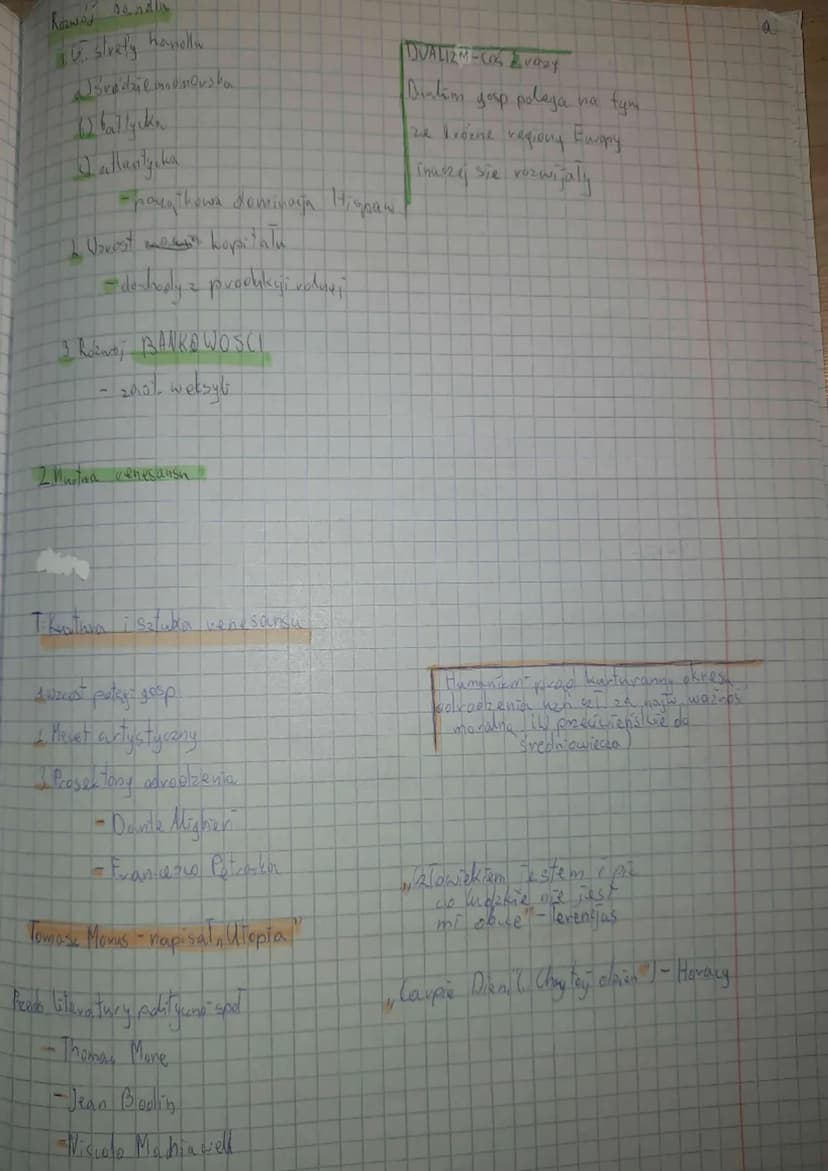 Rozwój handlu
1. strefy handlu
a) śródziemnomorska
b) bałtycka
c) atlantycka
- początkowa dominacja Hiszpan
2. Wzrost kapitału
- dochody z produkcji rolnej
3. Rozwój BANKOWOŚCI
- weksyli
DUALIZM - coś 2 razy
Dualizm gosp. polega na tym
że różne regiony Europy
inaczej się rozwijały
2. renesansu
T: Kultura i sztuka renesansu
1. Wzrost potęgi gosp
2. Mecet artystyczny
3. odrodzenia
- Dante Aligheri
- Francesco Petrarka
Humanizm - prąd kulturanny okresu
odrodzenia za
moralną (W przeciwieństwie do
średniowiecza)
„Człowiekiem jestem i nic
co ludzkie nie jest
mi obce" - Terencjusz
Tomasz Morus - napisał „Utopia"
„Carpie Diem (Chwytaj dzień") - Horacy
literatury polityczno-społ
- Thomas More
- Jean Bodin
- Niccolo Machiavelli